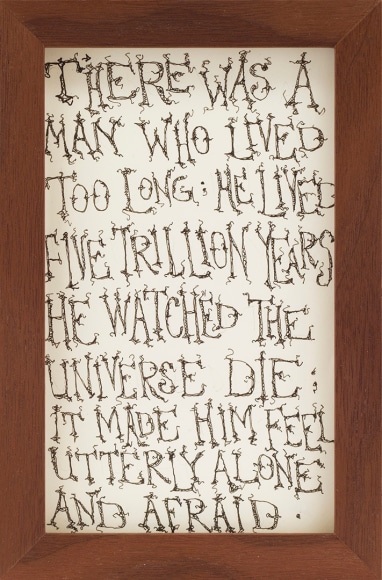 THERE WAS A
MAN WHO LIVED
TOO LONG; HE LIVED
FIVE TRILLION YEARS
HE WATCHED THE
UNIVERSE DIE;
IT MADE HIM FEEL
UTTERLY ALONE
AND AFRAID.